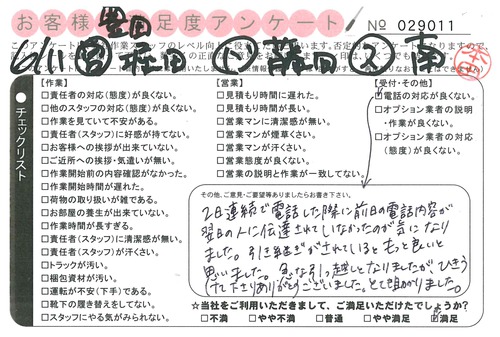 お客様満足度アンケート
№ 029011
翌日
6/11 堀田 藤田 南
【作業】
□責任者の対応(態度)が良くない。
□他のスタッフの対応(態度)が良くない。
□作業を見ていて不安がある。
□責任者(スタッフ)に好感が持てない。
□お客様への挨拶が出来ていない。
□ご近所への挨拶・気遣いが無い。
□作業開始前の内容確認がなかった。
□作業開始時間が遅れた。
□荷物の取り扱いが雑である。
□お部屋の養生が出来ていない。
□作業時間が長すぎる。
□責任者(スタッフ)に清潔感が無い。
□責任者(スタッフ)が汗くさい。
□トラックが汚い。
□梱包資材が汚い。
□運転が不安(下手)である。
□靴下の履き替えをしてない。
□スタッフにやる気がみられない。
【営業】
□見積もり時間に遅れた。
□見積もり時間が長い。
□営業マンに清潔感が無い。
□営業マンが煙草くさい。
□営業マンが汗くさい。
□営業態度が良くない。
□営業の説明と作業が一致してない。
【受付・その他】
□電話の対応が良くない。
□オプション業者の説明
・作業が良くない。
□オプション業者の対応
(態度)が良くない。
チェックリスト
その他、ご意見・ご要望等ありましたらお書き下さい。
2日連続で電話した際に前日の電話内容が
翌日の人に伝達されていしなかったのが気になり
ました。引き継ぎがされているともっと良いと
思いました。急な引っ越しとなりましたが、ひきう
けて下さりありがとうございました。とても助かりました。
☆当社をご利用いただきまして、ご満足いただけたでしょうか?
□不満 □やや不満 □普通 □やや満足 □満足